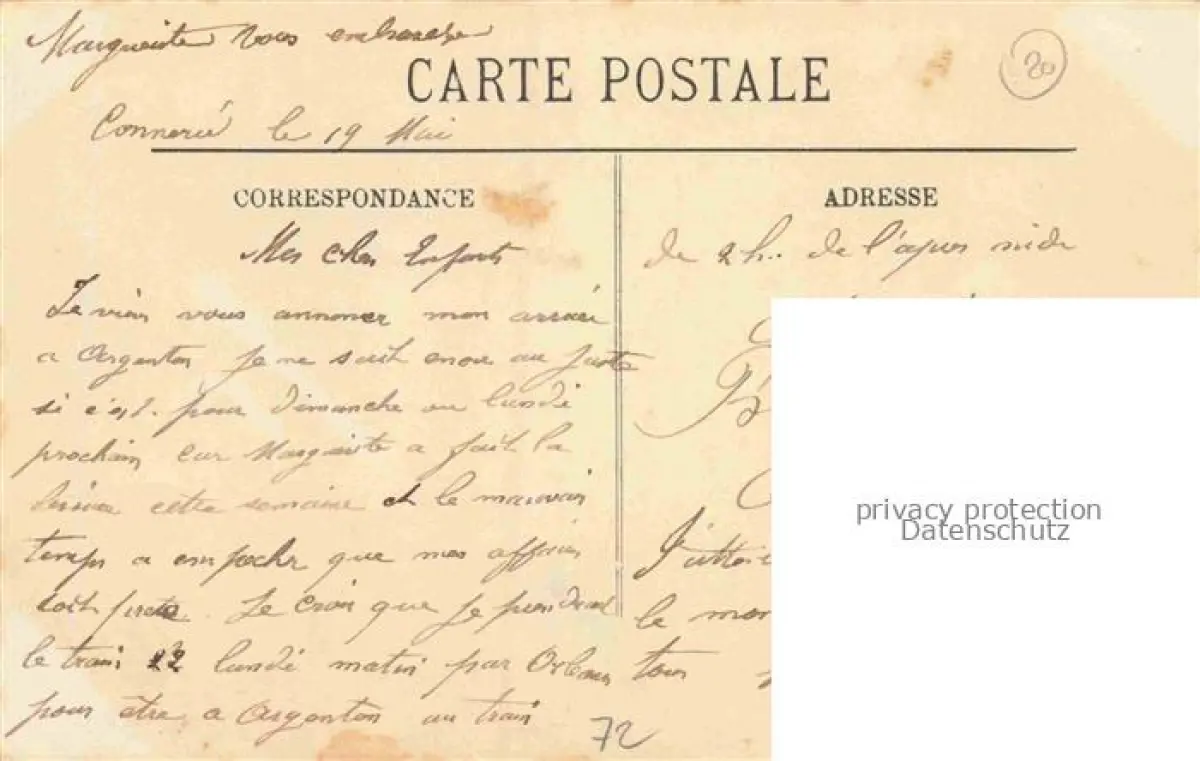 Marguerite vous embrasse
20
CARTE POSTALE
Connerré le 19 Mai
CORRESPONDANCE
Mes cher Enfants
Je viens vous annoncer mon arrivé
a Argenton je ne sait encor au juste
si c'est pour dimanche ou lundi
prochain car Marguerite a fait la
lessive cette semaine et le mauvais
temps a empecher que mes affaires
soit prete. Je crois que je prendrad
le train 22 lundi matin par Orleans
pour être a Argenton au train
72
ADRESSE
de 2h. de l'apres midi
le
tous
privacy protection
Datenschutz